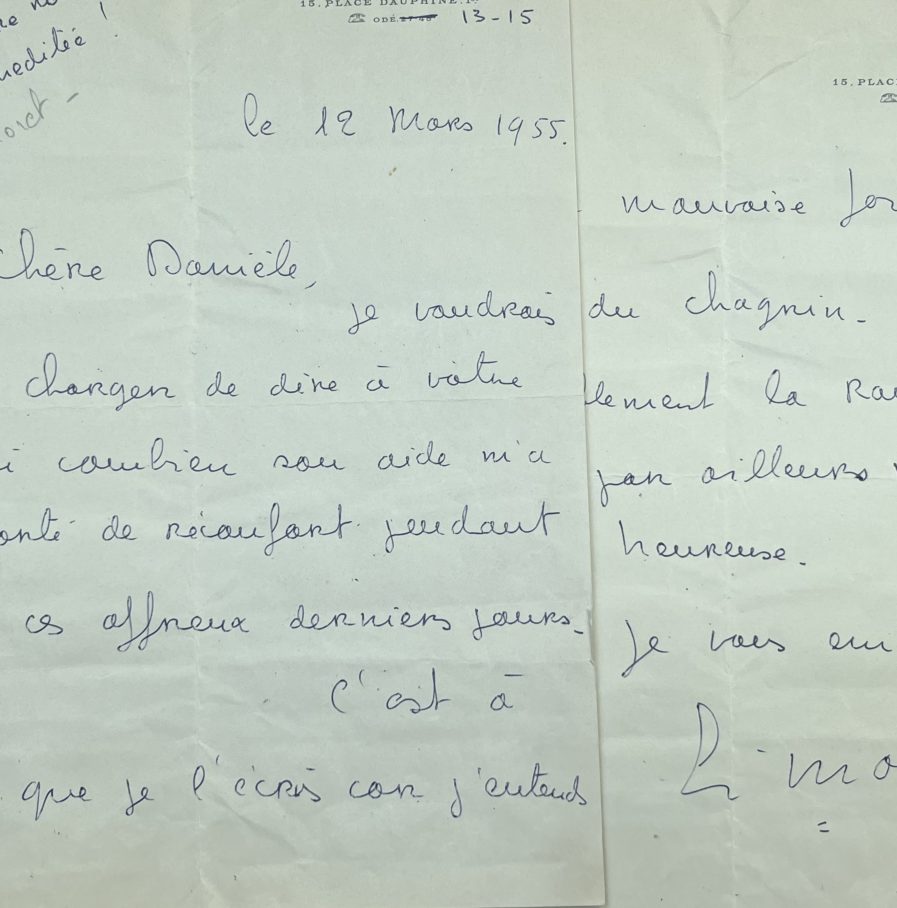 15, PLACE DAUPHINE. 1
ODÉ. 13-15
neditée !
le 12 Mars 1955.
chère Danièle,
je voudrais
charger de dire à votre
combien son aide m'a
de réconfort pendant
ces affreux derniers jours.
C'est à
que je l'écris car j'entends
15, PLAC
mauvaise for
du chagrin.
lement la Ra
par ailleurs
heureuse.
Je vous em